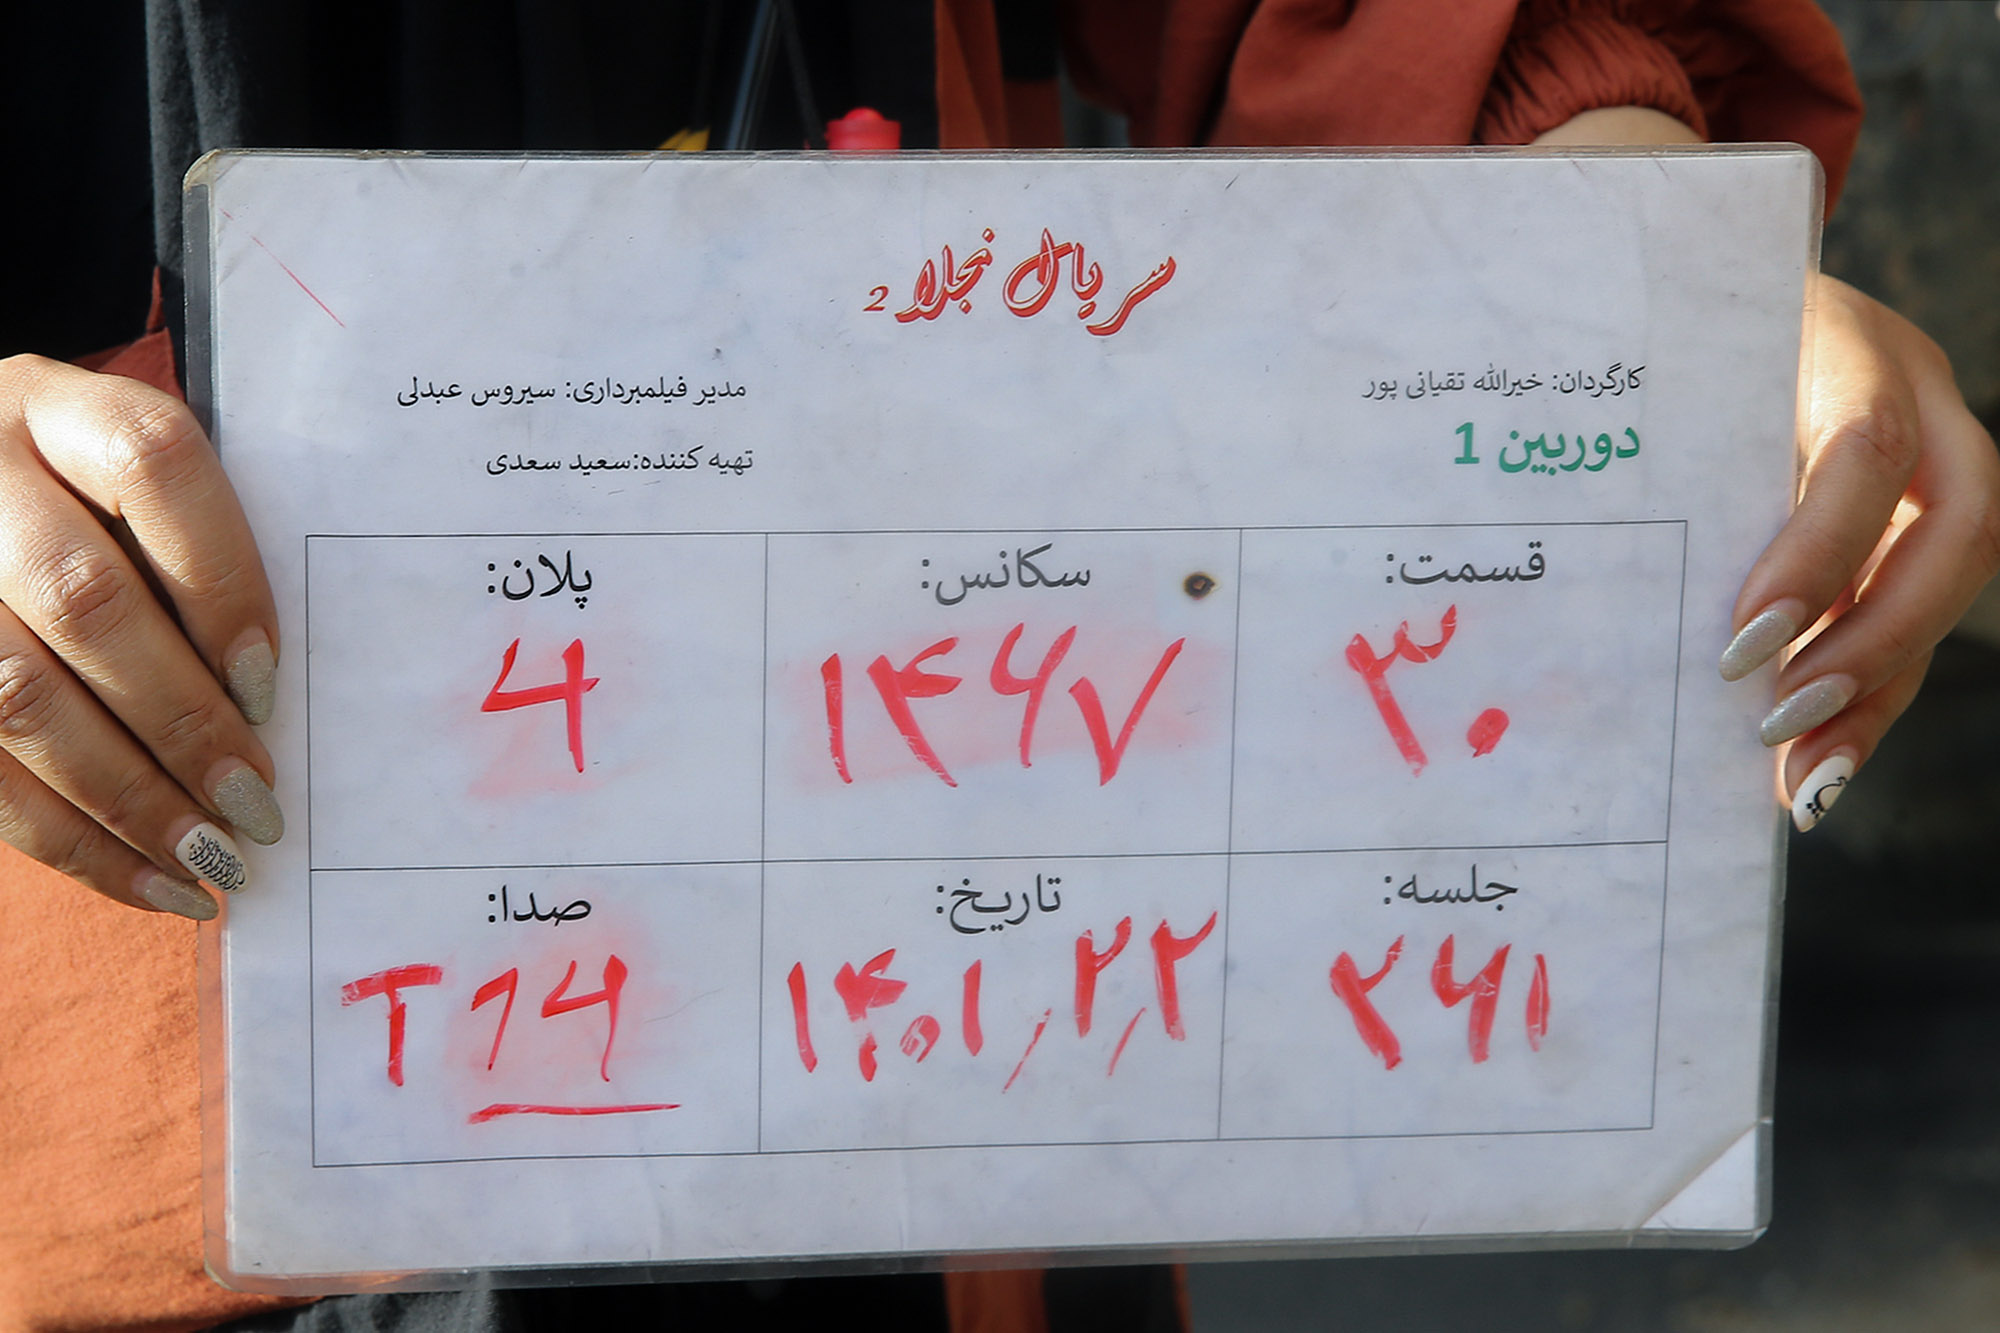 سریال نجلا 2
کارگردان: خیرالله تقیانی پور
مدیر فیلمبرداری: سیروس عبدلی
دوربین 1
تهیه کننده:سعید سعدی
قسمت:
۳۰
سکانس:
۱۴۶۷
پلان:
4
جلسه:
۲۶۱
تاریخ:
۱۴۰۱/۲/۲
صدا:
T 14